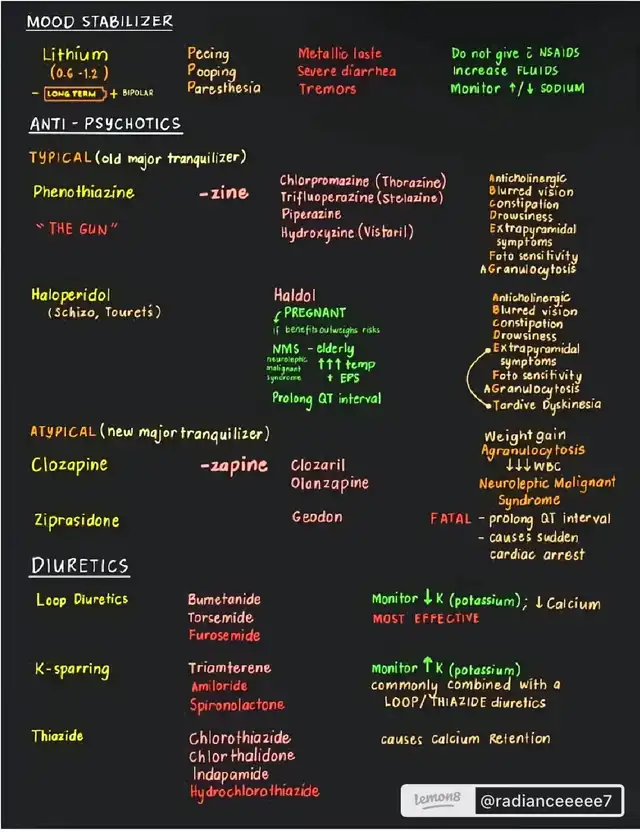 MOOD STABILIZER
Lithium
(0.6 -1.2)
- LONG TERM + BIPOLAR
Peeing
Pooping
Paresthesia
Metallic taste
Severe diarrhea
Tremors
Do not give c̄ NSAIDS
Increase FLUIDS
Monitor ↑/↓ SODIUM
ANTI - PSYCHOTICS
TYPICAL (old major tranquilizer)
Phenothiazine
"THE GUN"
-zine
Chlorpromazine (Thorazine)
Trifluoperazine (Stelazine)
Piperazine
Hydroxyzine (Vistaril)
Anticholinergic
Blurred vision
Constipation
Drowsiness
Extrapyramidal
symptoms
Foto sensitivity
AGranulocytosis
Haloperidol
(Schizo, Touret's)
Haldol
PREGNANT
if benefits outweighs risks
NMS - elderly
neuroleptic
malignant
syndrome
↑↑↑ temp
+ EPS
Prolong QT interval
Anticholinergic
Blurred vision
Constipation
Drowsiness
Extrapyramidal
symptoms
Foto sensitivity
AGranulocytosis
Tardive Dyskinesia
ATYPICAL (new major tranquilizer)
Clozapine
-zapine
Clozaril
Olanzapine
Weight gain
Agranulocytosis
↓↓↓ WBC
Neuroleptic Malignant
Syndrome
Ziprasidone
Geodon
FATAL - prolong QT interval
- causes sudden
cardiac arrest
DIURETICS
Loop Diuretics
Bumetanide
Torsemide
Furosemide
Monitor ↓ K (potassium); ↓ Calcium
MOST EFFECTIVE
K-sparring
Triamterene
Amiloride
Spironolactone
Monitor ↑ K (potassium)
commonly combined with a
LOOP/THIAZIDE diuretics
Thiazide
Chlorothiazide
Chlorthalidone
Indapamide
Hydrochlorothiazide
causes Calcium Retention
lemon8 @radianceeeee7